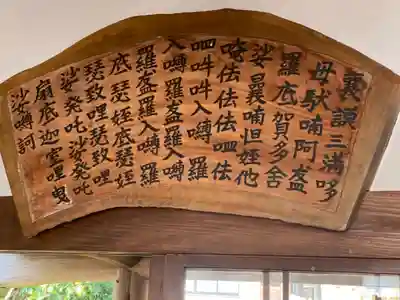 曩謨三満哆
母駄喃阿盋
羅底賀多舎
娑曩喃怛姪他
唵佉佉佉呬佉
呬吽吽入嚩羅
入嚩羅盋羅入嚩
羅盋羅入嚩羅
底瑟姹底瑟姹
瑟致哩瑟致哩
娑発吒娑発吒
扇底迦室哩曳
娑嚩訶